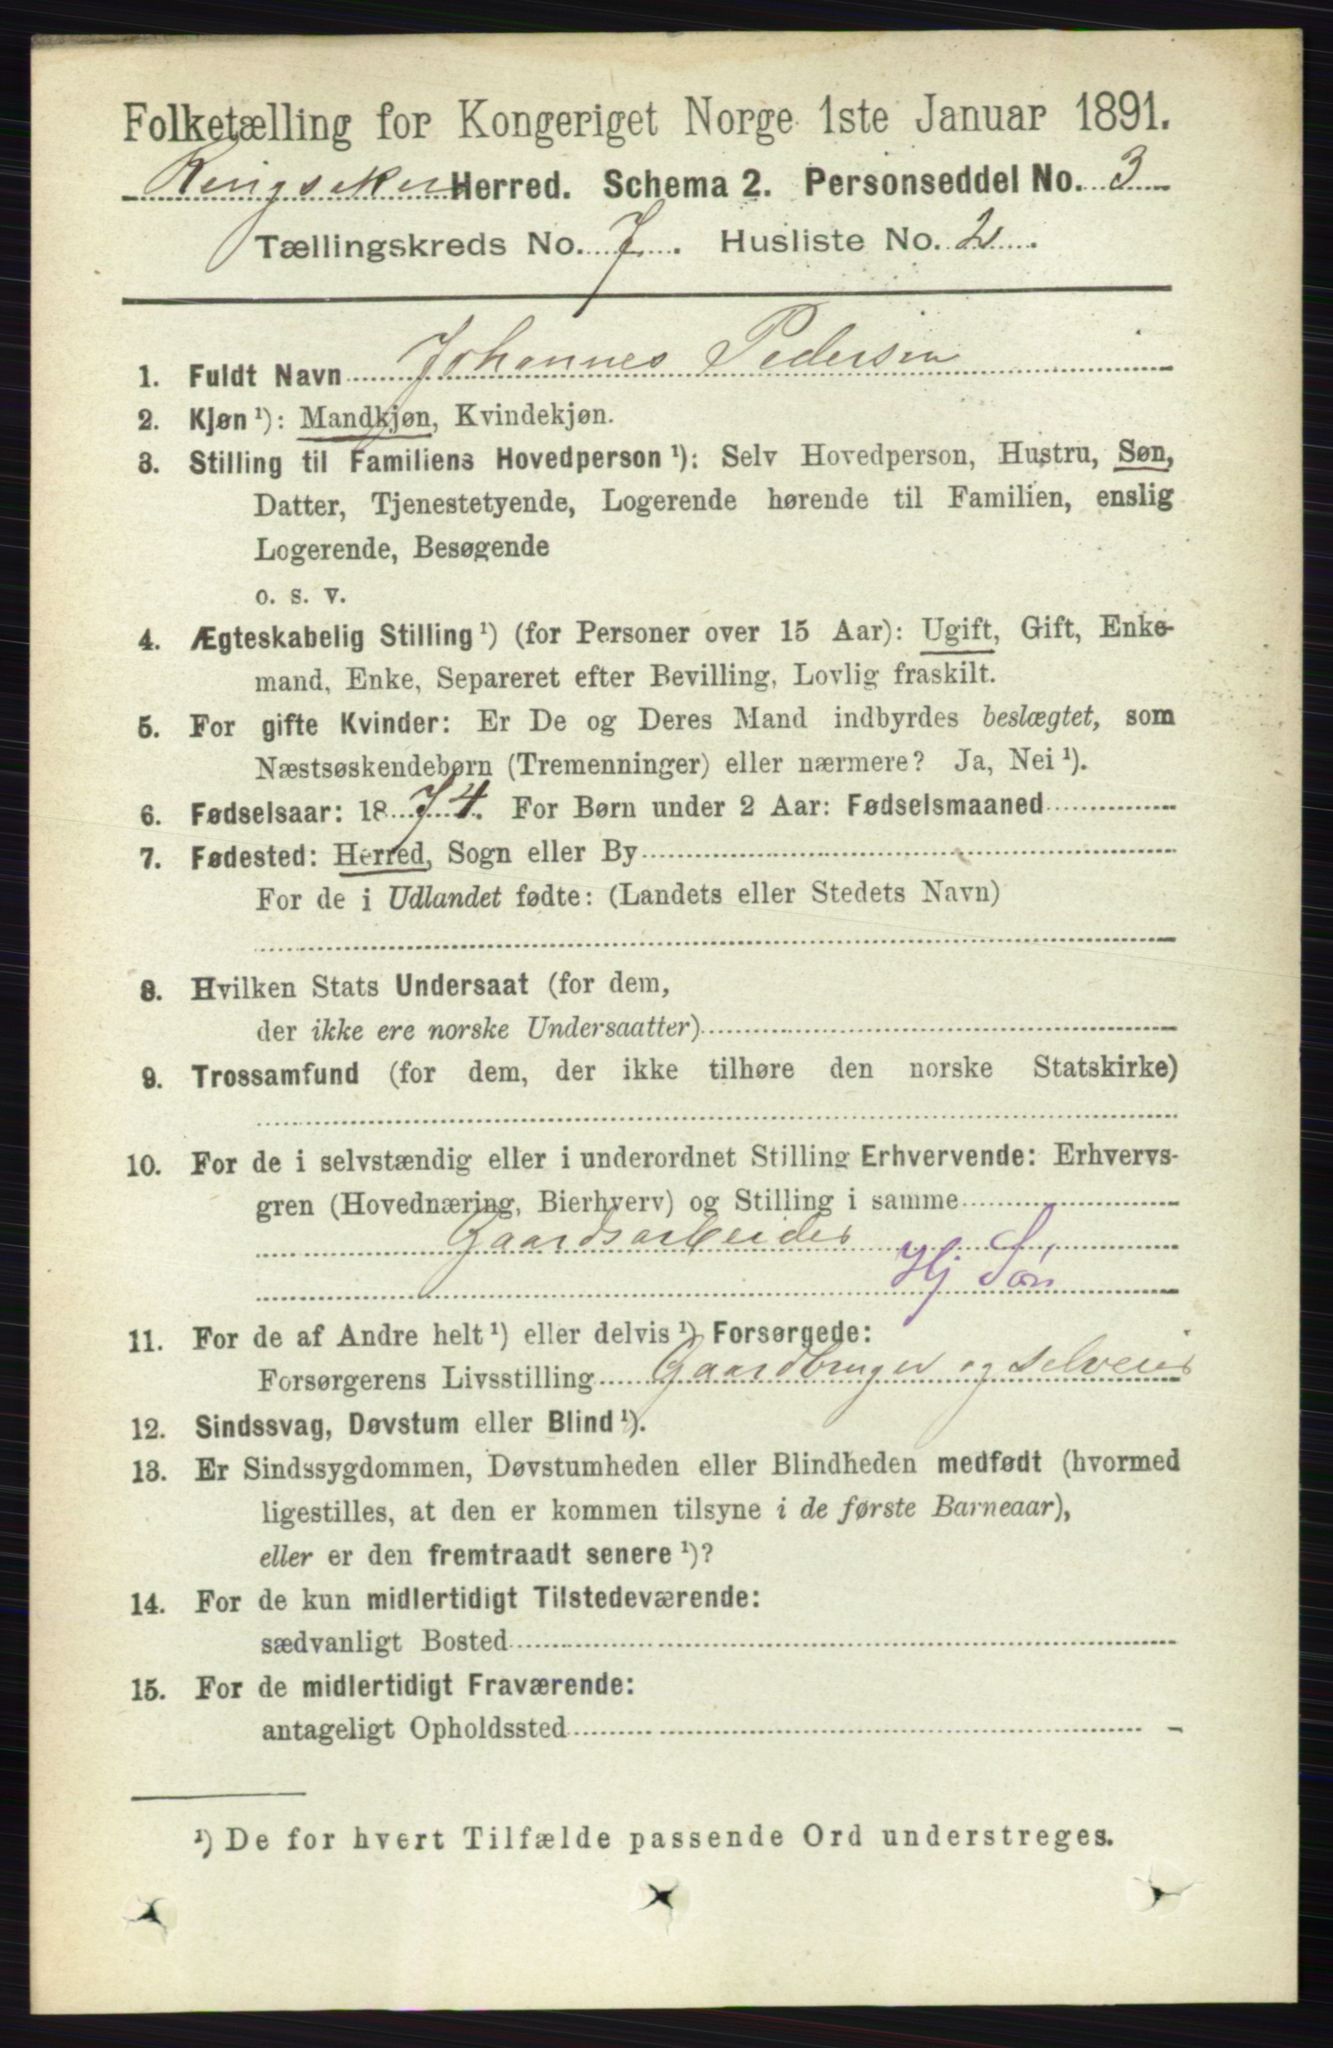 Folketælling for Kongeriget Norge 1ste Januar 1891.
Ringsaker Herred. Schema 2. Personseddel No. 3
Tællingskreds No. 7. Husliste No. 2.
1. Fuldt Navn Johannes Pedersen
2. Kjøn ¹): Mandkjøn, Kvindekjøn.
3. Stilling til Familiens Hovedperson ¹): Selv Hovedperson, Hustru, Søn,
Datter, Tjenestetyende, Logerende hørende til Familien, enslig
Logerende, Besøgende
o. s. v.
4. Ægteskabelig Stilling ¹) (for Personer over 15 Aar): Ugift, Gift, Enke-
mand, Enke, Separeret efter Bevilling, Lovlig fraskilt.
5. For gifte Kvinder: Er De og Deres Mand indbyrdes beslægtet, som
Næstsøskendebørn (Tremenninger) eller nærmere? Ja, Nei ¹).
6. Fødselsaar: 1874. For Børn under 2 Aar: Fødselsmaaned
7. Fødested: Herred, Sogn eller By
For de i Udlandet fødte: (Landets eller Stedets Navn)
8. Hvilken Stats Undersaat (for dem,
der ikke ere norske Undersaatter)
9. Trossamfund (for dem, der ikke tilhøre den norske Statskirke)
10. For de i selvstændig eller i underordnet Stilling Erhvervende: Erhvervs-
gren (Hovednæring, Bierhverv) og Stilling i samme
Gaardsarbeider
Hj Søn
11. For de af Andre helt ¹) eller delvis ¹) Forsørgede:
Forsørgerens Livsstilling Gaardbruger og selveier
12. Sindssvag, Døvstum eller Blind ¹).
13. Er Sindssygdommen, Døvstumheden eller Blindheden medfødt (hvormed
ligestilles, at den er kommen tilsyne i de første Barneaar),
eller er den fremtraadt senere ¹)?
14. For de kun midlertidigt Tilstedeværende:
sædvanligt Bosted
15. For de midlertidigt Fraværende:
antageligt Opholdssted
¹) De for hvert Tilfælde passende Ord understreges.